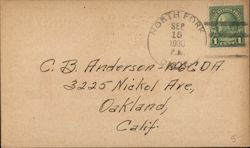 NORTH FORK
SEP
15
P.M.
1
C. B. Anderson
3225 Nickol Ave,
Oakland,
Calif.